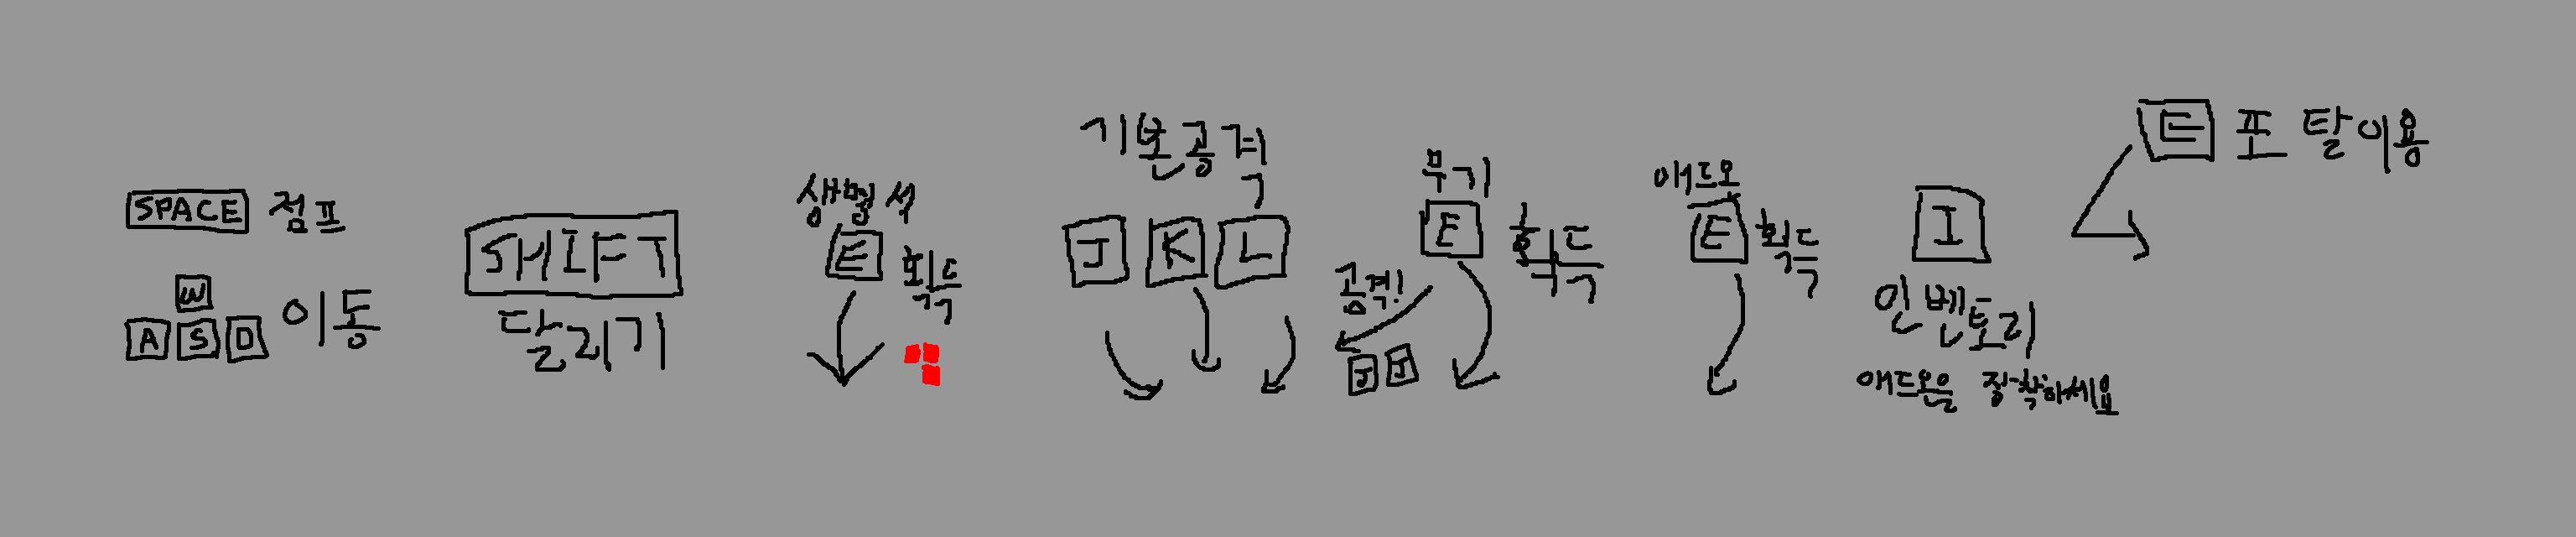 SPACE 점프
W
A S D 이동
SHIFT
달리기
생명석
E 획득
기본공격
J K L
무기
E 획득
공격!
J J
애드온
E 획득
I
인벤토리
애드온을 장착하세요
E 포탈이용